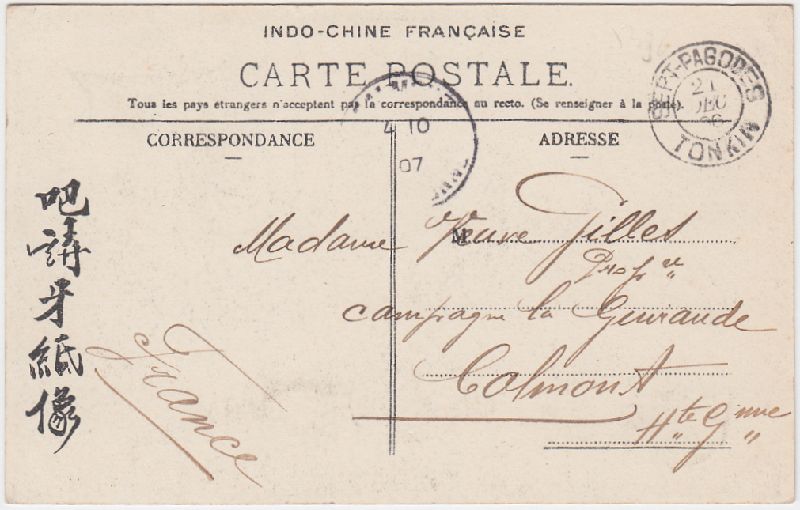 INDO-CHINE FRANÇAISE
CARTE POSTALE.
Tous les pays étrangers n'acceptent pas la correspondance au recto. (Se renseigner à la poste).
SEPT-PAGODES
21
DEC
06
TONKIN
4 10
07
CORRESPONDANCE
ADRESSE
M
Madame Veuve Gilles
Propre
campagne la Gueraude
Colmont
Hte Gnne
France
吧
請
牙
紙
像